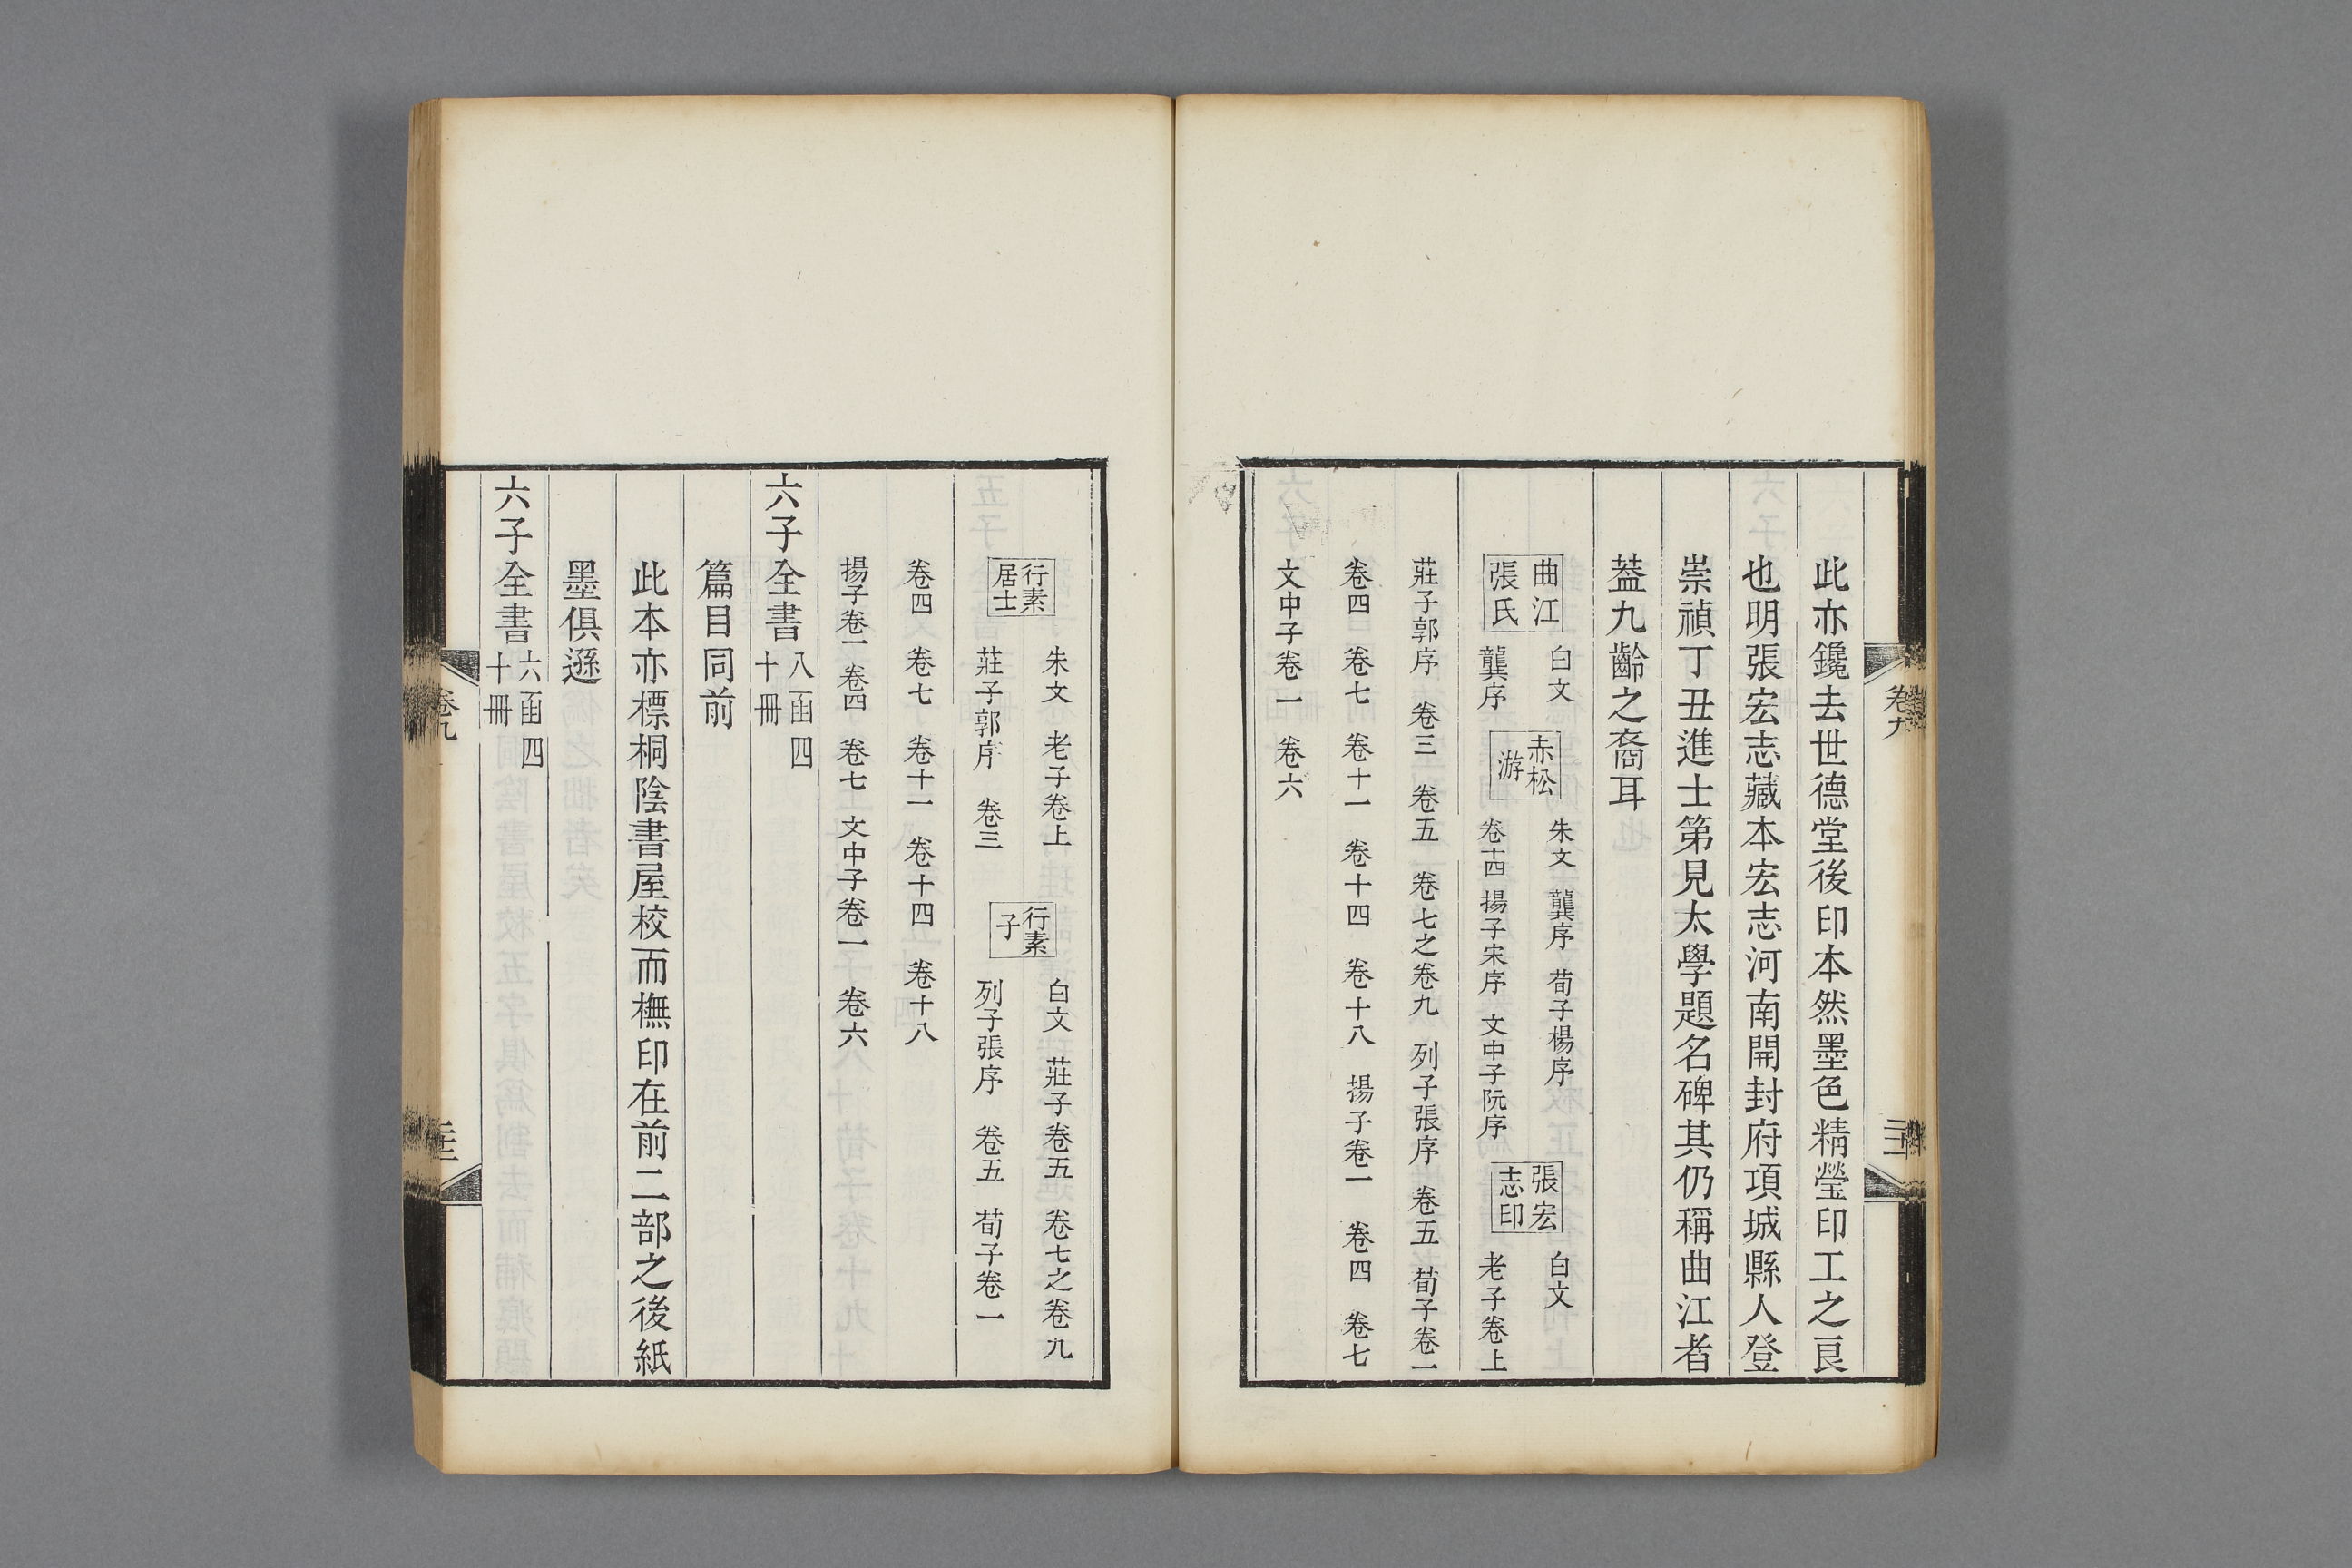 此亦鑱去世德堂後印本然墨色精瑩印工之良
也明張宏志藏本宏志河南開封府項城縣人登
崇禎丁丑進士第見太學題名碑其仍稱曲江者
葢九齡之裔耳
曲江張氏 白文 赤松游 朱文 龔序 荀子楊序 張宏志印 白文
龔序 卷十四 揚子宋序 文中子阮序 老子卷上
莊子郭序 卷三 卷五 卷七之卷九 列子張序 卷五 荀子卷一
卷四 卷七 卷十一 卷十四 卷十八 揚子卷一 卷四 卷七
文中子卷一 卷六
卷九
行素居士 朱文 老子卷上 行素子 白文 莊子卷五 卷七之卷九
莊子郭序 卷三 列子張序 卷五 荀子卷一
卷四 卷七 卷十一 卷十四 卷十八
揚子卷一 卷四 卷七 文中子卷一 卷六
六子全書 八函四十冊
篇目同前
此本亦標桐陰書屋校而橅印在前二部之後紙
墨俱遜
六子全書 六函四十冊
卷九